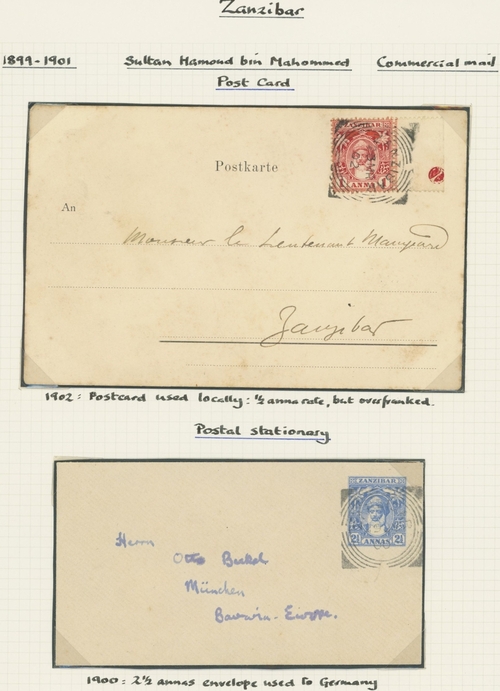 Zanzibar
1899-1901 Sultan Hamoud bin Mahommed Commercial mail
Post Card
ZANZIBAR
1 ANNA 1
Postkarte
An
Monsieur le Lieutenant
Zanzibar
1902: Postcard used locally: ½ anna rate, but overfranked.
Postal stationery
ZANZIBAR
2½ ANNAS 2½
Herrn
Otto
München
Bavaria - Europe.
1900: 2½ annas envelope used to Germany